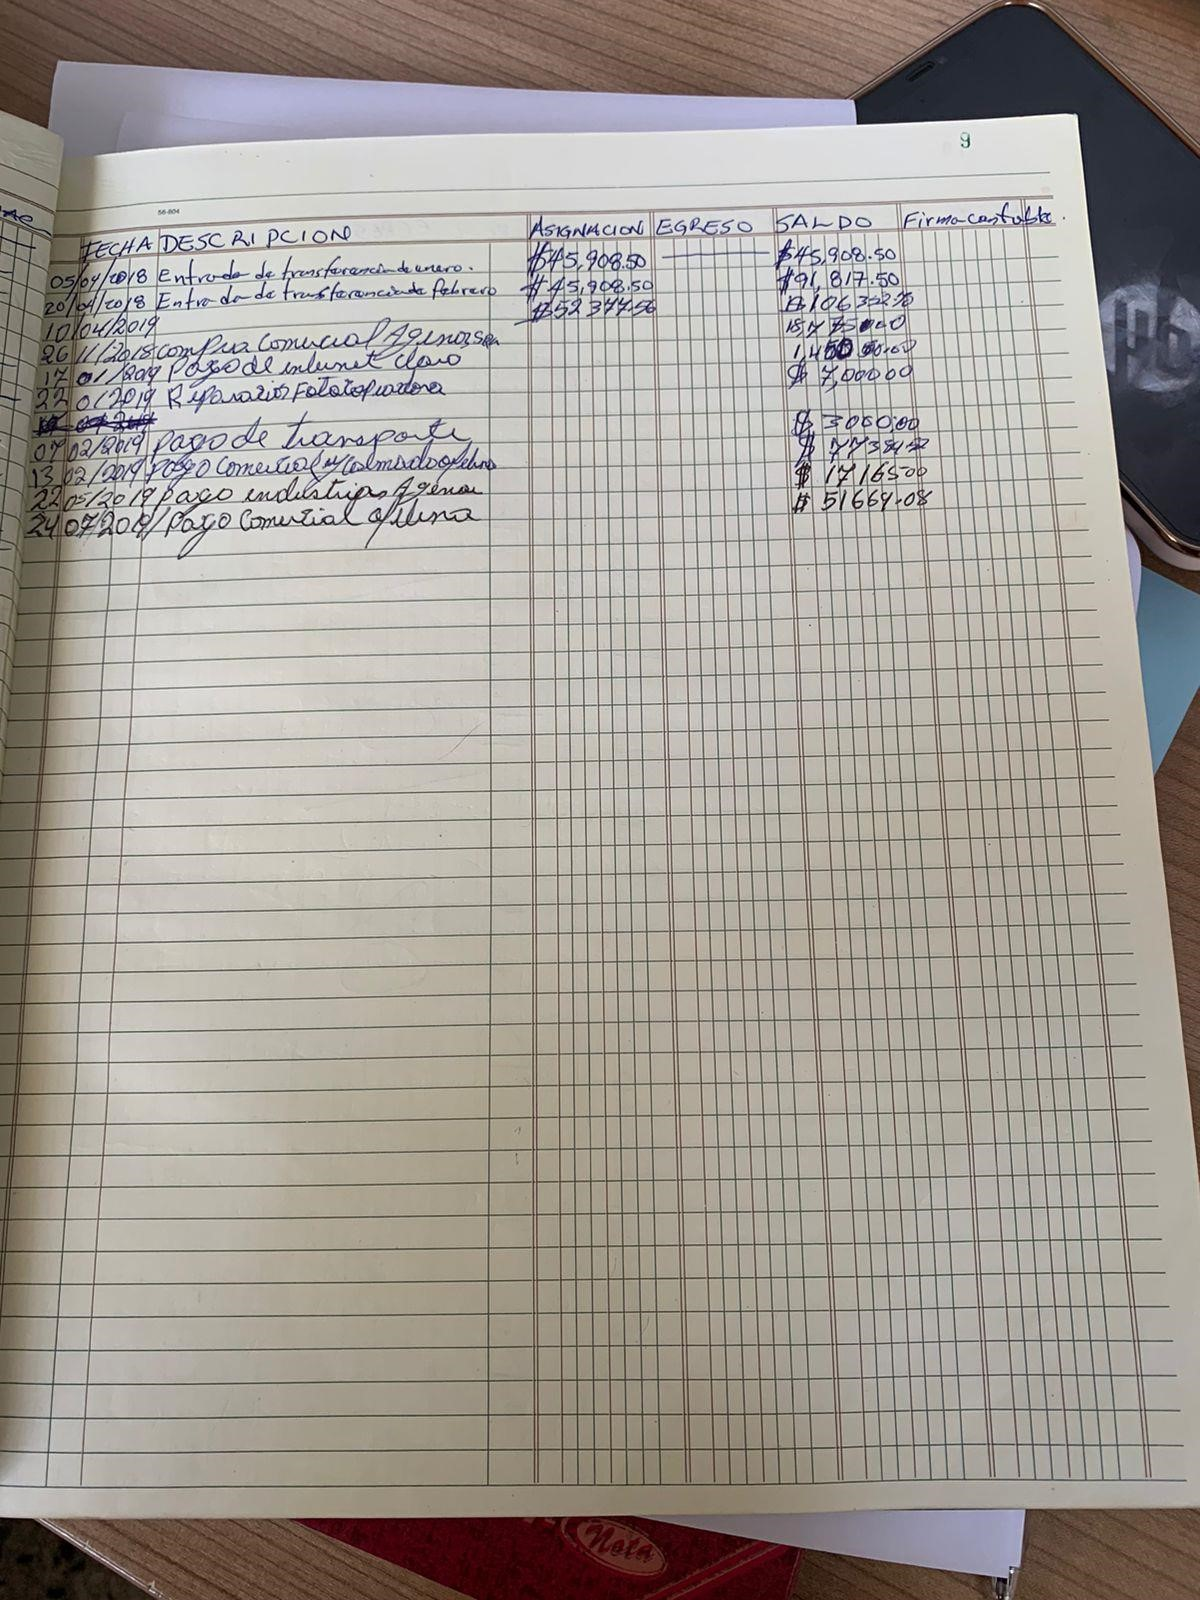 9
56-804
FECHA DESCRIPCION ASIGNACION EGRESO SALDO Firma contable.
05/04/2018 Entrada de transferencia de enero. $45,908.50 $45,908.50
20/04/2018 Entrada de transferencia de Febrero $45,908.50 $91,817.50
10/04/2019 $52377.56
26 11/2018 compra comercial Agenor
17 01/2019 Pago de internet claro
22 01/2019 Reparacion Fotocopiadora $ 7,00000
07 02/2019 pago de transporte $ 3060,00
13 02/2019 pago Comercial
22 05/2019 pago industrias Agenor $ 1716500
24 07/2019/ pago Comercial $ 51664.08
Nota
hp